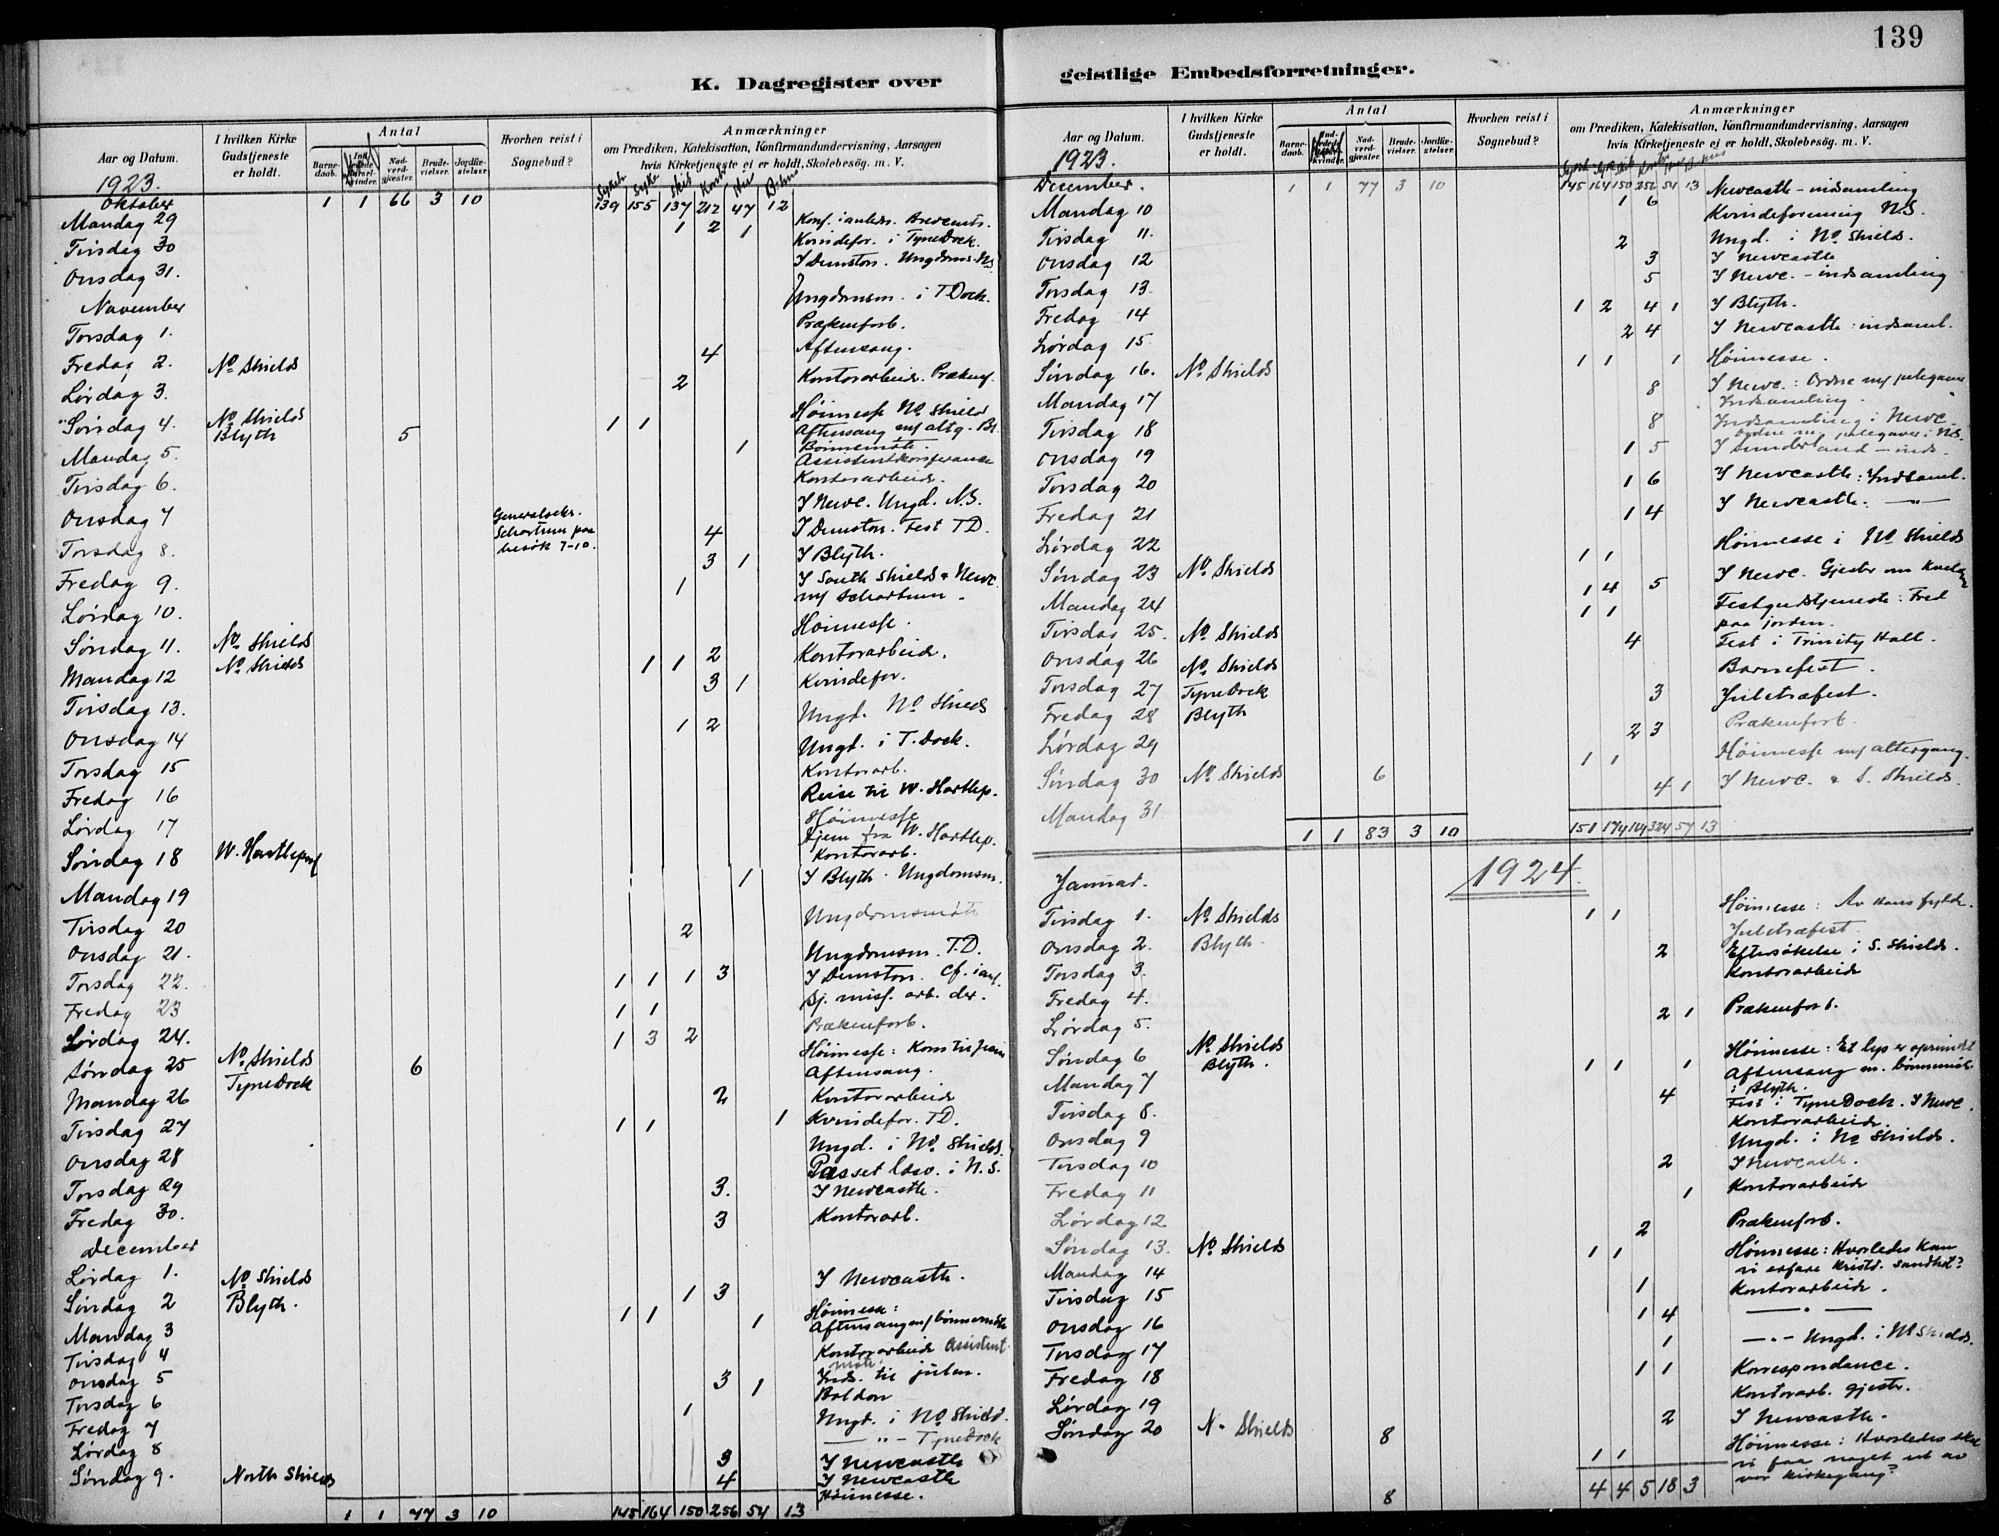 139
K. Dagregister over
geistlige Embedsforretninger.
Aar og Datum.
I hvilken Kirke Gudstjeneste er holdt.
Antal
Barnedaab.
Nadverdgjæster.
Brudevielser.
Jordfæstelser.
Hvorhen reist i Sognebud?
Anmærkninger
om Prædiken, Katekisation, Konfirmandundervisning, Aarsagen
hvis Kirketjeneste ei er holdt, Skolebesög. m. V.
1923.
Oktober 1 1 66 3 10 139 155 137 212 47 12
Mandag 29 1 2 1
Tirsdag 30 Kvindefor. i TyneDock.
Onsdag 31. I Dunston. Ungdoms. NS
November Ungdomsm. i T.Dock.
Torsdag 1. Prækenforb.
Fredag 2. No. Shields 4 Aftensang.
Lørdag 3. 2 Kontorarbeid. Prækenf.
Søndag 4. No. Shields 1 1 Høimesse No. Shields
Blyth 5 Aftensang m/ altg. Bl.
Mandag 5. 1 Bønnemøte.
Assistentkonferance
Tirsdag 6. Kontorarbeid.
Onsdag 7 I Newc. Ungd. N.S.
Generalsekr. Schartum paa besøk 7-10.
Torsdag 8. 4 I Dunston. Fest T.D.
3 1 I Blyth.
Fredag 9. 1 I South Shields & Newc.
m/ Schartum.
Lørdag 10.
Søndag 11. No. Shields Høimesse.
Mandag 12 No. Shields 1 1 2 Kontorarbeid.
Tirsdag 13. 3 1 Kvindefor.
Onsdag 14 1 2 Ungd. No. Shields
Torsdag 15 Ungd. i T. Dock.
Fredag 16 Kontorarb.
Lørdag 17 Reise til W. Hartlep.
Søndag 18 W. Hartlepool Høimesse
Hjem fra W. Hartlep.
Kontorarb.
Mandag 19 1 I Blyth. Ungdomsm.
Tirsdag 20 2 Ungdomsmøte
Onsdag 21. Ungdomsm. T.D.
Torsdag 22. 1 1 1 3 I Dunston.
Fredag 23 1 1 Sj. miss. arb. der.
Lørdag 24. 1 3 2 Prækenforb.
Søndag 25 No. Shields 6 Høimesse: Kom til
TyneDock Aftensang.
Mandag 26 2 Kontorarbeid
Tirsdag 27 1 1 1 Kvindefor. T.D.
Onsdag 28 Ungd. i No. Shields.
Torsdag 29 3. I Newcastle.
Fredag 30. 3 Kontorarb.
December
Lørdag 1. No. Shields 1 3 I Newcastle.
Søndag 2 Blyth. 1 1 1 Høimesse:
Aftensang m/ bønnemøte
Mandag 3 Kontorarbeid Assistentmøte.
Tirsdag 4 3 1 Inds. til julen.
Onsdag 5 Boldon
Torsdag 6 1 Ungd. i No. Shield.
Fredag 7 — " — TyneDock
Lørdag 8 3 I Newcastle
Søndag 9. North Shields 4 I Newcastle
Høimesse.
1 1 77 3 10 145 164 150 256 54 13
Aar og Datum.
I hvilken Kirke Gudstjeneste er holdt.
Antal
Barnedaab.
Nadverdgjæster.
Brudevielser.
Jordfæstelser.
Hvorhen reist i Sognebud?
Anmærkninger
om Prædiken, Katekisation, Konfirmandundervisning, Aarsagen
hvis Kirketjeneste ei er holdt, Skolebesög. m. V.
1923.
December. 1 1 77 3 10 145 164 150 256 54 13 Newcastle – indsamling
Mandag 10 1 6 Kvindeforening N.S.
Tirsdag 11. 2 Ungd. i No. Shields.
Onsdag 12 3 I Newcastle
Torsdag 13. 5 I Newc. – indsamling
Fredag 14 1 2 4 1 I Blyth.
Lørdag 15. 2 4 I Newcastle: indsaml.
Søndag 16. No. Shields 1 1 1 Høimesse.
Mandag 17 8 I Newc.: Ordne m/ julegaver
Indsamling.
Tirsdag 18 8 Indsamling i Newc.
Ordne m/ julegaver i N.S.
Onsdag 19 1 5 I Sunderland – inds.
Torsdag 20 1 6 I Newcastle: Indsaml.
Fredag 21 1 4 I Newcastle. — " —
Lørdag 22
Søndag 23 No. Shields 1 1 Høimesse i No. Shields
Mandag 24 1 4 5 I Newc. Gjester om kvelden
Tirsdag 25. No. Shields 1 1 Festgudstjeneste: Fred
paa jorden.
Onsdag 26 No. Shields 4 Fest i Trinity Hall.
Torsdag 27 TyneDock Barnefest.
Fredag 28 Blyth 3 Juletræfest.
Lørdag 29 2 3 Prækenforb.
Søndag 30 No. Shields 6 1 1 Høimesse m/ altergang.
Mandag 31 4 1 I Newc. & S. Shields.
1 1 83 3 10 151 174 164 324 57 13
1924.
Januar.
Tirsdag 1. No. Shields 1 1 Høimesse: Av Hans fylde.
Onsdag 2. Blyth Juletræfest.
Torsdag 3. 2 Eftersøkelse i S. Shields.
Fredag 4. Kontorarbeid
Lørdag 5. 2 1 Prækenforb.
Søndag 6 No. Shields 1 1 1 Høimesse: Et lys er oprundet
Blyth. Aftensang m. bønnemøt.
i Blyth.
Mandag 7 4 Fest i TyneDock. I Newc.
Tirsdag 8. Kontorarbeide.
Onsdag 9 Ungd. i No Shields.
Torsdag 10 2 I Newcastle.
Fredag 11 1 Kontorarbeid
Lørdag 12 2 Prækenforb.
Søndag 13. No. Shields 1 1 Høimesse: Hvorledes kan
vi erfare kristd. sandhet?
Mandag 14 1 Kontorarbeide.
Tirsdag 15 1 4 — " —
Onsdag 16 1 — " — Ungd. i No Shields.
Torsdag 17 1 1 Korrespondance.
Fredag 18 Kontorarb. Gjestr.
Lørdag 19 2 I Newcastle.
Søndag 20 N. Shields 8 1 1 Høimesse: Hvorledes skal
vi faa noget ut av
vor kirkegang?
8 4 4 5 18 3